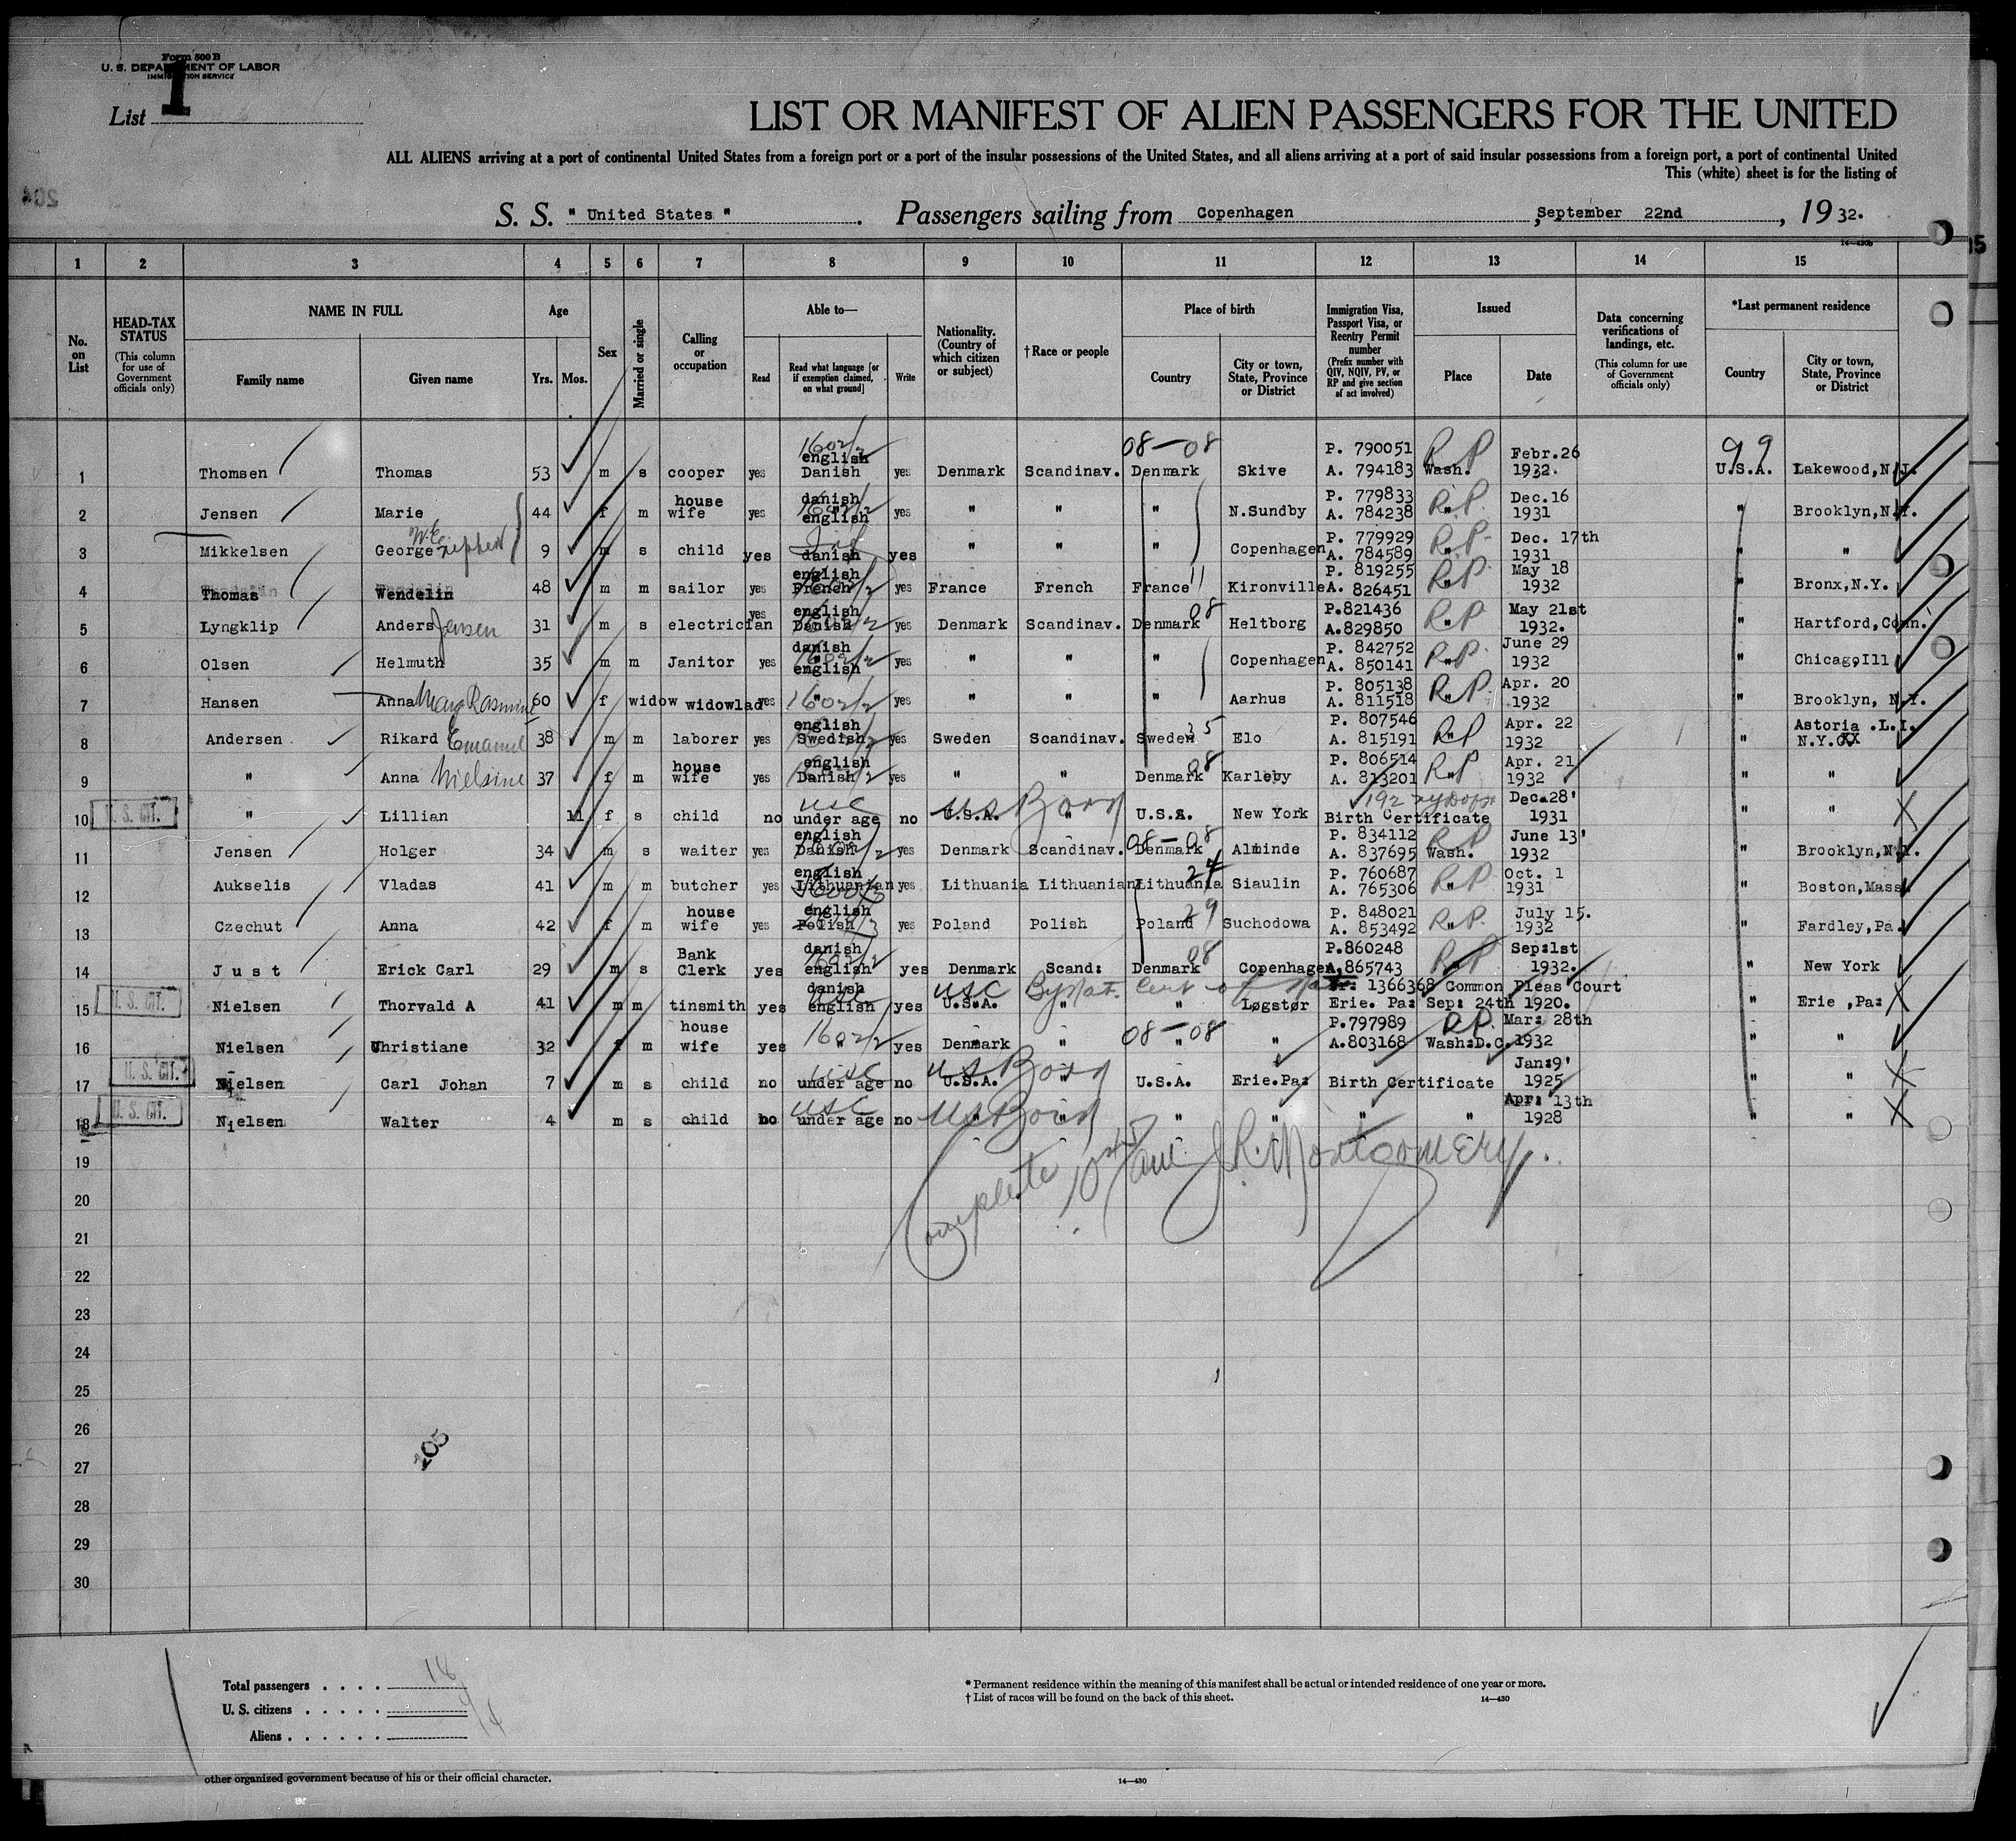 Form 500 B
U. S. DEPARTMENT OF LABOR
IMMIGRATION SERVICE
1
List
LIST OR MANIFEST OF ALIEN PASSENGERS FOR THE UNITED
ALL ALIENS arriving at a port of continental United States from a foreign port or a port of the insular possessions of the United States, and all aliens arriving at a port of said insular possessions from a foreign port, a port of continental United
This (white) sheet is for the listing of
204
S. S. " United States ". Passengers sailing from Copenhagen, September 22nd, 1932.
14—430b
15
1 2 3 4 5 6 7 8 9 10 11 12 13 14 15
No. on List
HEAD-TAX STATUS (This column for use of Government officials only)
NAME IN FULL Family name Given name
Age Yrs. Mos.
Sex
Married or single
Calling or occupation
Able to— Read Read what language [or if exemption claimed, on what ground] Write
Nationality. (Country of which citizen or subject)
†Race or people
Place of birth Country City or town, State, Province or District
Immigration Visa, Passport Visa, or Reentry Permit number (Prefix number with QIV, NQIV, PV, or RP and give section of act involved)
Issued Place Date
Data concerning verifications of landings, etc. (This column for use of Government officials only)
*Last permanent residence Country City or town, State, Province or District
1 Thomsen Thomas 53 m s cooper yes 1602/2 english Danish yes Denmark Scandinav. 08-08 Denmark Skive P. 790051 A. 794183 RP Wash. Febr.26 1932. 99 U.S.A. Lakewood,N.J.
2 Jensen Marie 44 f m house wife yes danish 1602/2 english yes " " " N.Sundby P. 779833 A. 784238 RP " Dec.16 1931 " Brooklyn,N.Y.
3 Mikkelsen George nephew 9 m s child yes danish yes " " " Copenhagen P. 779929 A. 784589 RP " Dec. 17th 1931 " "
4 Thomas Wendelin 48 m m sailor yes english French 1602/2 yes France French France 11 Kironville P. 819255 A. 826451 RP " May 18 1932 " Bronx,N.Y.
5 Lyngklip Anders Jensen 31 m s electrician yes english Danish 1602/2 yes Denmark Scandinav. Denmark 08 Heltborg P.821436 A.829850 RP " May 21st 1932. " Hartford,Conn.
6 Olsen Helmuth 35 m m Janitor yes danish " 1602/2 english yes " " " Copenhagen P. 842752 A. 850141 RP " June 29 1932 " Chicago,Ill
7 Hansen Anna Mary Rasmine 60 f widow widowlad yes " 1602/2 yes " " " Aarhus P. 805138 A. 811518 RP " Apr. 20 1932 " Brooklyn, N.Y.
8 Andersen Rikard Emanuel 38 m m laborer yes english Swedish yes Sweden Scandinav. Sweden 35 Elo P. 807546 A. 815191 RP " Apr. 22 1932 " Astoria .L.I. N.Y.C.XX
9 " Anna Nielsine 37 f m house wife yes english Danish yes " " Denmark 08 Karleby P. 806514 A. 813201 RP " Apr. 21 1932 " "
10 U. S. CIT. " Lillian 11 f s child no USC under age no US Born U.S.A. " U.S.A. New York Birth Certificate Dec.28' 1931 " "
11 Jensen Holger 34 m s waiter yes english Danish 1602/2 yes Denmark Scandinav. 08-08 Denmark Alminde P. 834112 A. 837695 RP Wash. June 13' 1932 " Brooklyn,N.Y.
12 Aukselis Vladas 41 m m butcher yes english Lithuanian yes Lithuania Lithuanian Lithuania 24 Siaulin P. 760687 A. 765306 RP " Oct. 1 1931 " Boston,Mass.
13 Czechut Anna 42 f m house wife yes english Polish yes Poland Polish Poland 29 Suchodowa P. 848021 A. 853492 RP " July 15. 1932 " Fardley,Pa.
14 Just Erick Carl 29 m s Bank Clerk yes danish 1602/2 english yes Denmark Scand: Denmark 08 Copenhagen P.860248 A.865743 RP " Sep:1st 1932. " New York
15 U. S. CIT. Nielsen Thorvald A 41 m m tinsmith yes danish USC english yes USC U.S.A. By Nat. Cert of Nat. " " Løgstør Nr: 1366368 Common Pleas Court Erie. Pa: Sep: 24th 1920. " Erie ,Pa:
16 Nielsen Christiane 32 f m house wife yes 1602/2 " yes Denmark " 08-08 " " P.797989 A.803168 RP. Wash:D.C. Mar: 28th 1932 " "
17 U. S. CIT. Nielsen Carl Johan 7 m s child no USC under age no US Born U.S.A. " U.S.A. Erie.Pa: Birth Certificate Jan:9' 1925 " "
18 U. S. CIT. Nielsen Walter 4 m s child no USC under age no US Born " " " " " " Apr: 13th 1928 " "
19
Complete J.R. Montgomery.
20
21
22
23
24
25
26
205
27
28
29
30
Total passengers . . . . 18
U. S. citizens . . . . . 4
Aliens . . . . . . 14
* Permanent residence within the meaning of this manifest shall be actual or intended residence of one year or more.
† List of races will be found on the back of this sheet. 14—430
other organized government because of his or their official character. 14—430